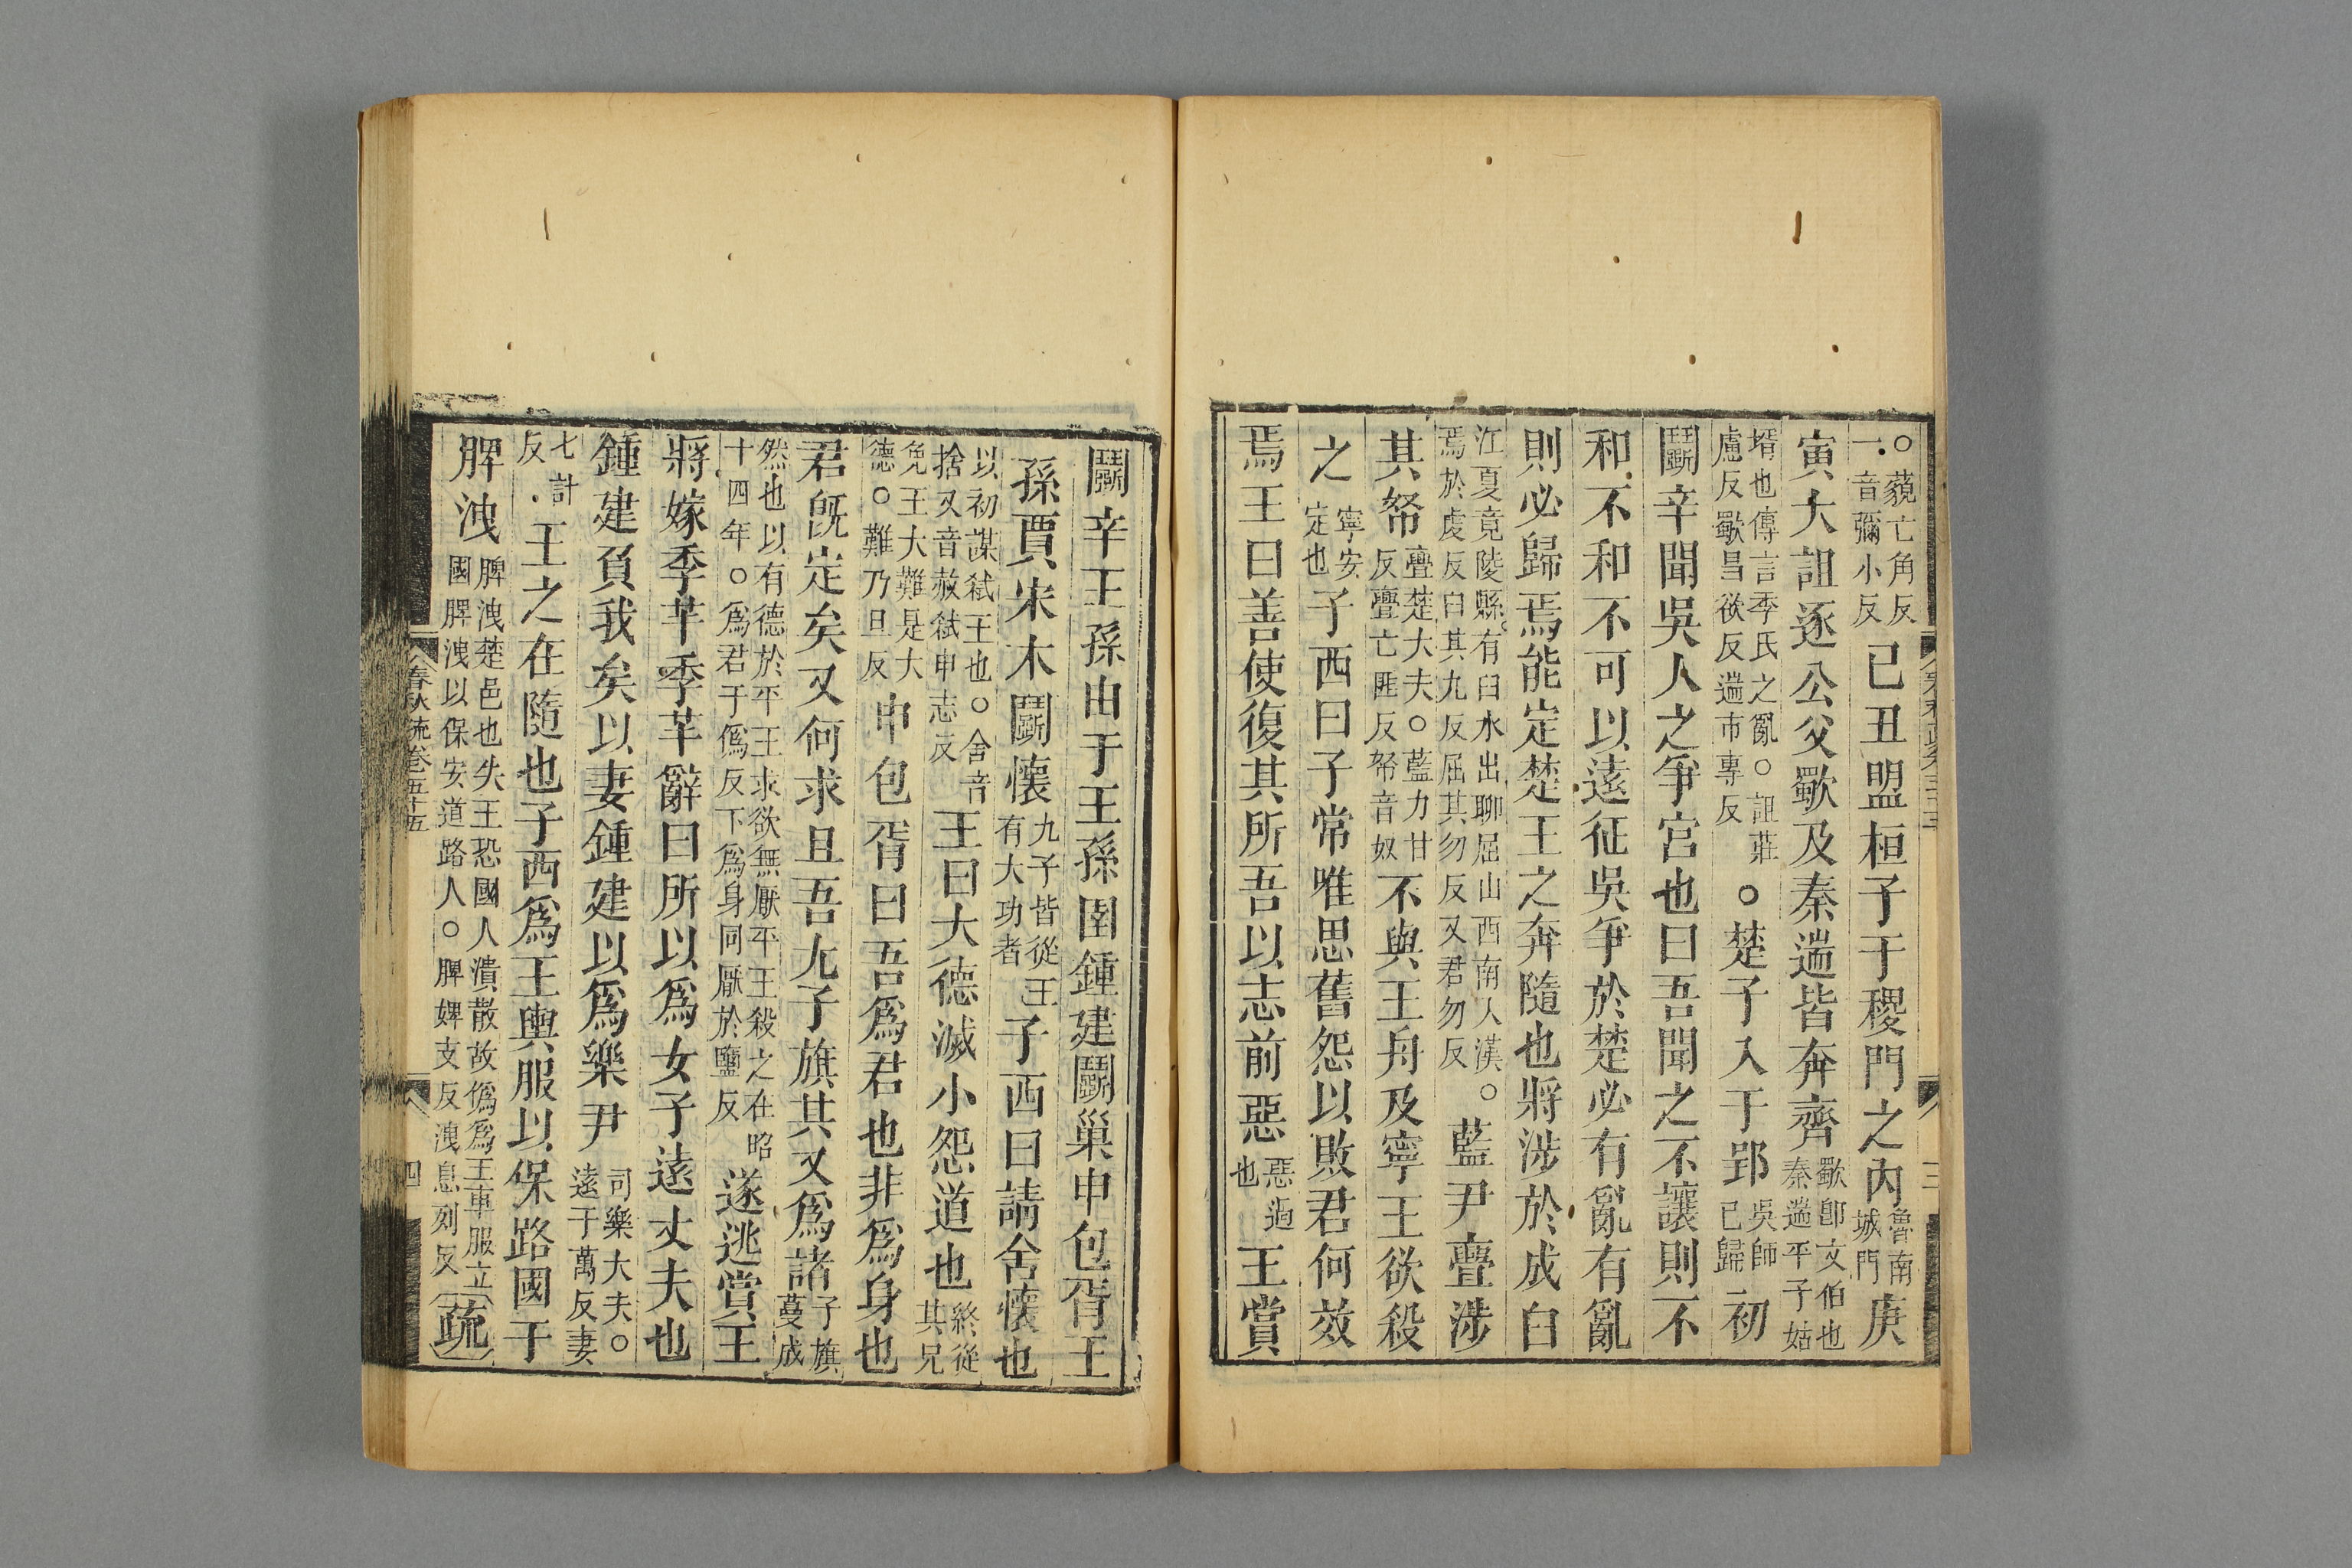 ○藐亡角反
一音彌小反
已丑盟桓子于稷門之內
魯南
城門
庚
寅大詛逐公父歜及秦遄皆奔齊
歜卽文伯也
秦遄平子姑
壻也傳言季氏之亂○詛莊
慮反歜昌欲反遄市專反
○楚子入于郢
吳師
已歸
初
鬭辛聞吳人之爭宮也曰吾聞之不讓則不
和不和不可以遠征吳爭於楚必有亂有亂
則必歸焉能定楚王之奔隨也將涉於成臼
江夏竟陵縣有臼水出聊屈山西南入漢○
焉於虔反臼其九反屈其勿反又君勿反
藍尹亹涉
其帑
亹楚大夫○藍力甘
反亹亡匪反帑音奴
不與王舟及寧王欲殺
之
寧安
定也
子西曰子常唯思舊怨以敗君何效
焉王曰善使復其所吾以志前惡
惡過
也
王賞
鬭辛王孫由于王孫圉鍾建鬭巢申包胥王
孫賈宋木鬭懷
九子皆從王
有大功者
子西曰請舍懷也
以初謀弒王也○舍音
捨又音赦弒申志反
王曰大德滅小怨道也
終從
其兄
免王大難是大
德○難乃旦反
申包胥曰吾爲君也非爲身也
君旣定矣又何求且吾尤子旗其又爲諸
子旗
蔓成
然也以有德於平王求欲無厭平王殺之在昭
十四年○爲君于僞反下爲身同厭於鹽反
遂逃賞王
將嫁季羋季羋辭曰所以爲女子遠丈夫也
鍾建負我矣以妻鍾建以爲樂尹
司樂大夫○
遠于萬反妻
七計
反
王之在隨也子西爲王輿服以保路國于
脾洩
脾洩楚邑也失王恐國人潰散故僞爲王車服立
國脾洩以保安道路人○脾婢支反洩息列反
疏
春秋疏卷五十五
四
三